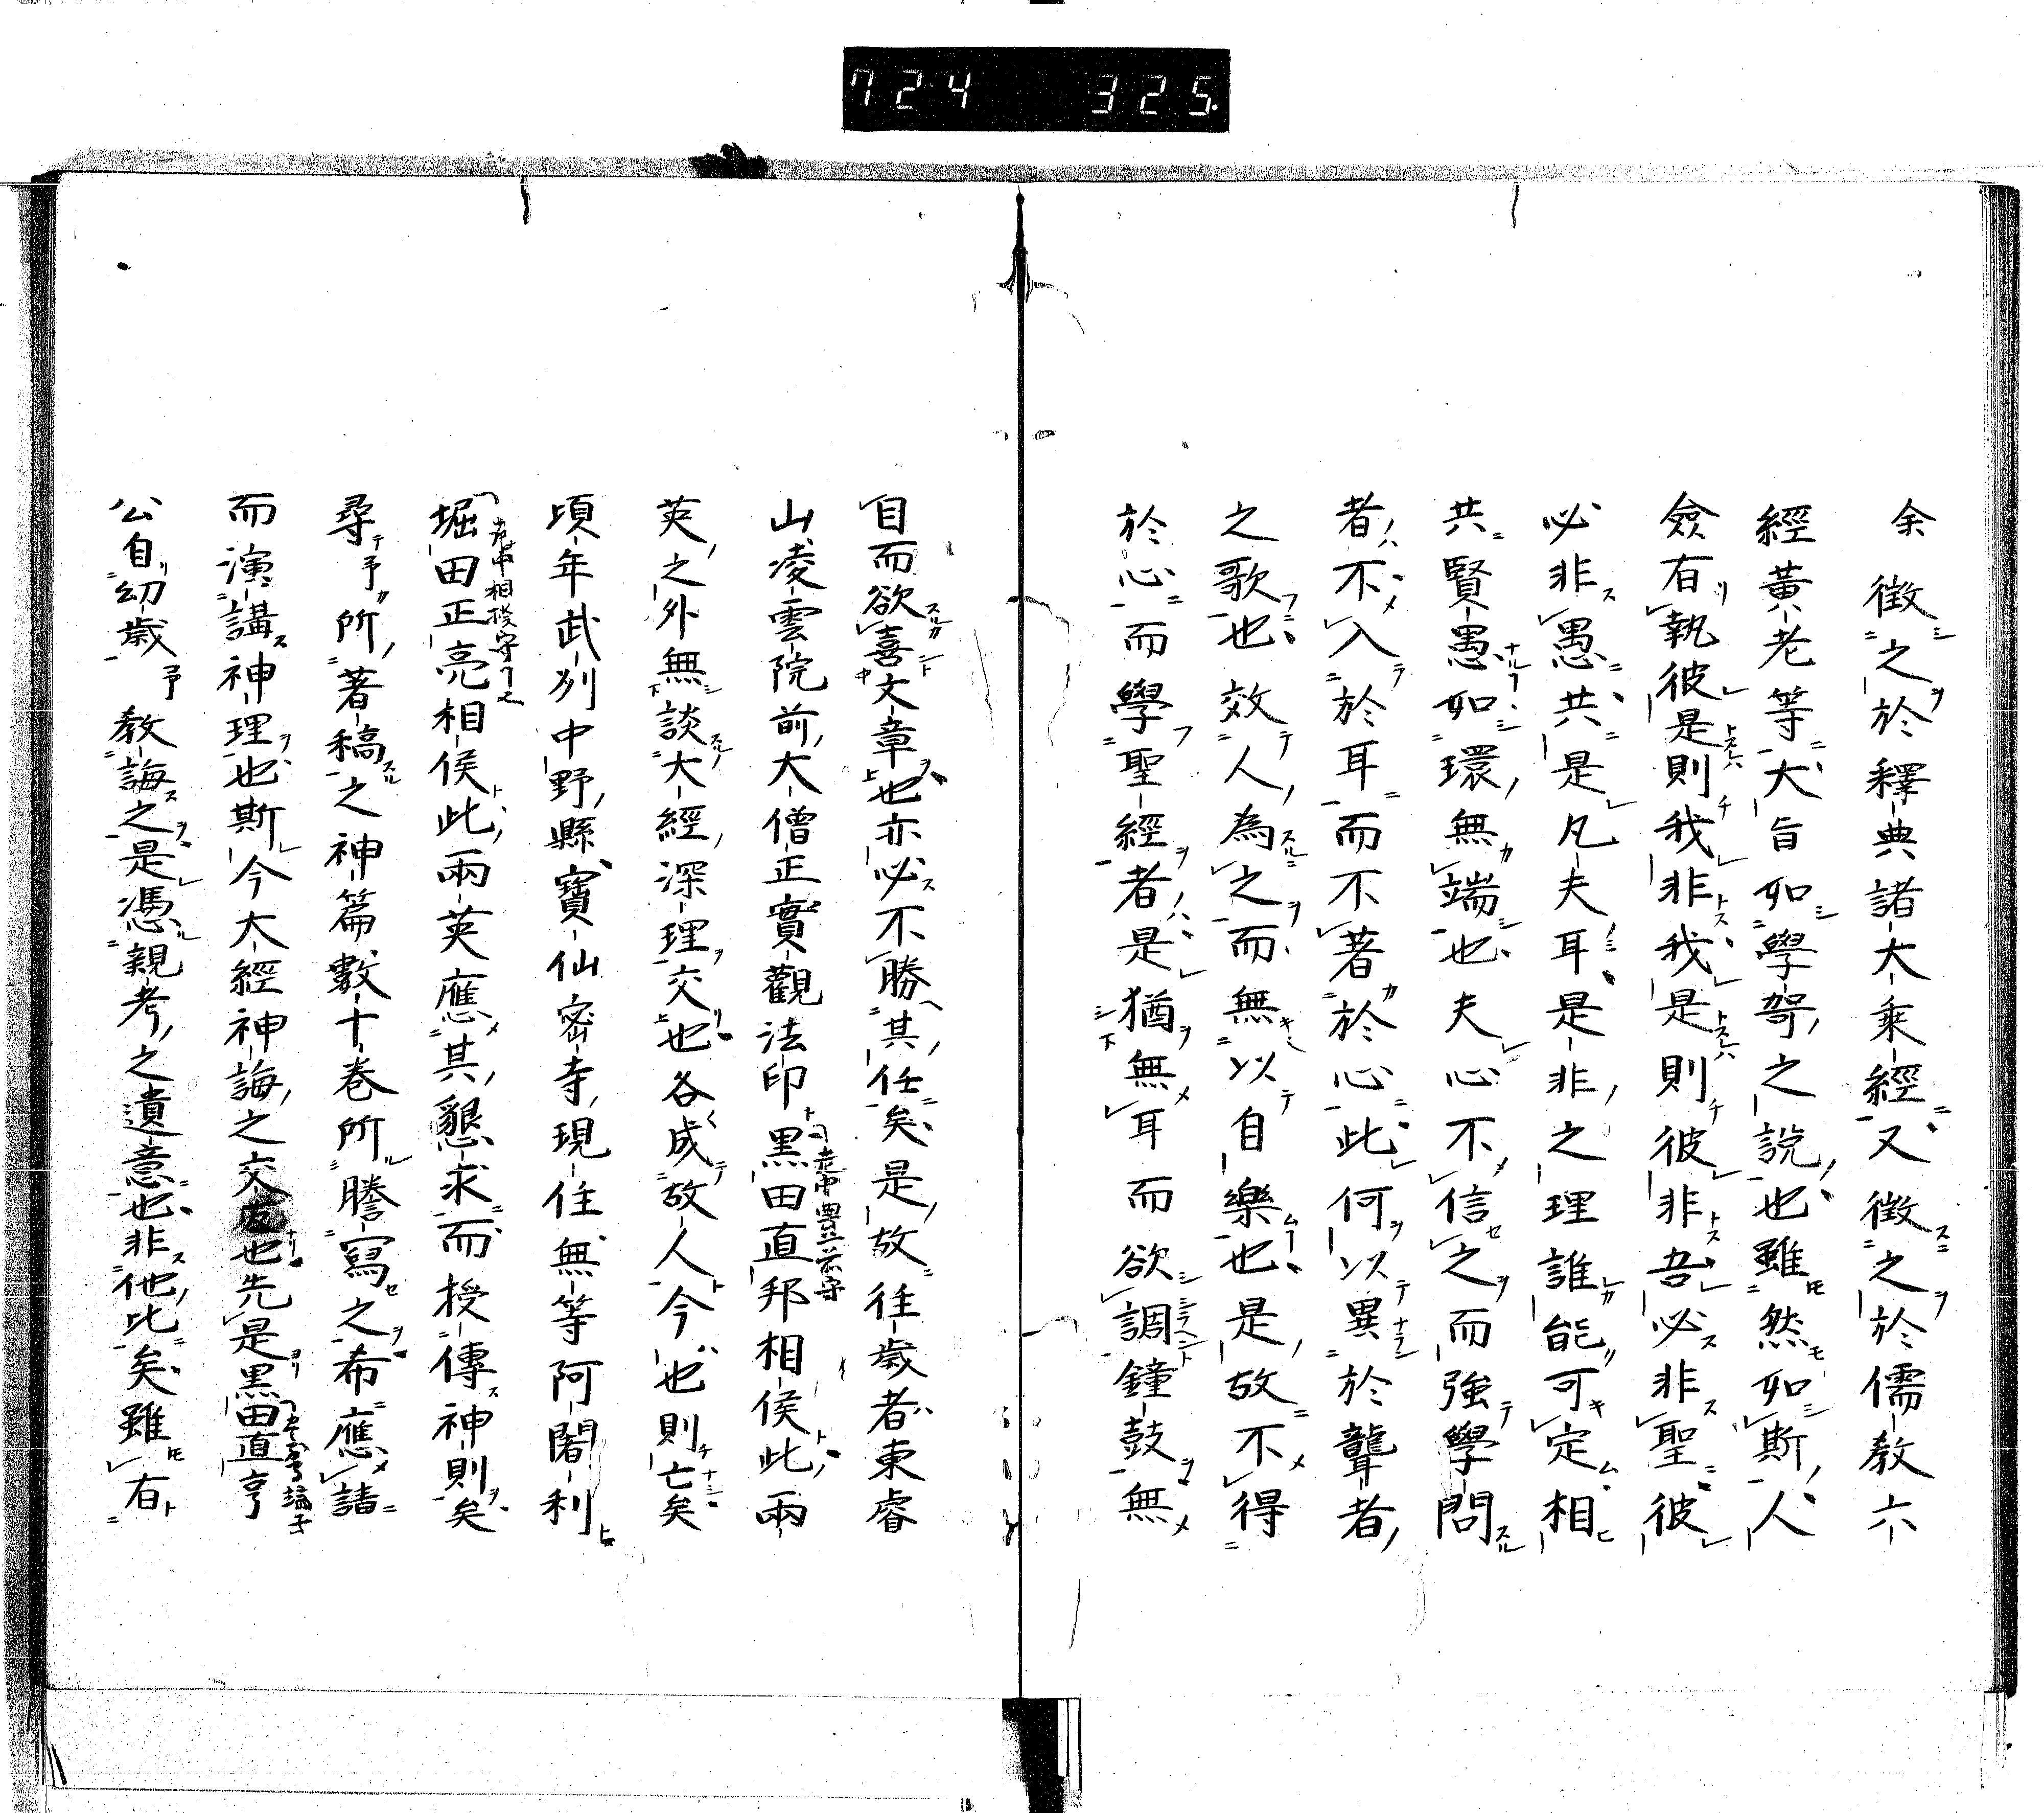 724 325
余徴之於釋典諸大乘經又徴之於儒教六
經黃老等大旨如學哿之說也雖然如斯人
僉有執彼是則我非我是則彼非吾必非聖彼
必非愚共是凡夫耳是非之理誰能可定相
共賢愚如環無端也夫心不信之而強學問
者不入於耳而不著於心此何以異於聾者
之歌也效人為之而無以自樂也是故不得
於心而學聖經者是猶無耳而欲調鐘鼓無
目而欲喜文章也亦必不勝其任矣是故往歲者東睿
山凌雲院前大僧正實觀法印黒田直邦相侯此兩
老中豊前守
英之外無談大經深理交也各成故人今也則亡矣
頃年武州中野縣寶仙密寺現住無等阿闍利
堀田正亮相侯此兩英應其懇求而授傳神則矣
老中相模守
尋予所著稿之神篇數十巻所謄寫之希應請
而演講神理也斯今大經神誨之交友也先是黒田直亨
公自幼歲予教誨之是憑親考之遺意也非他比矣雖右